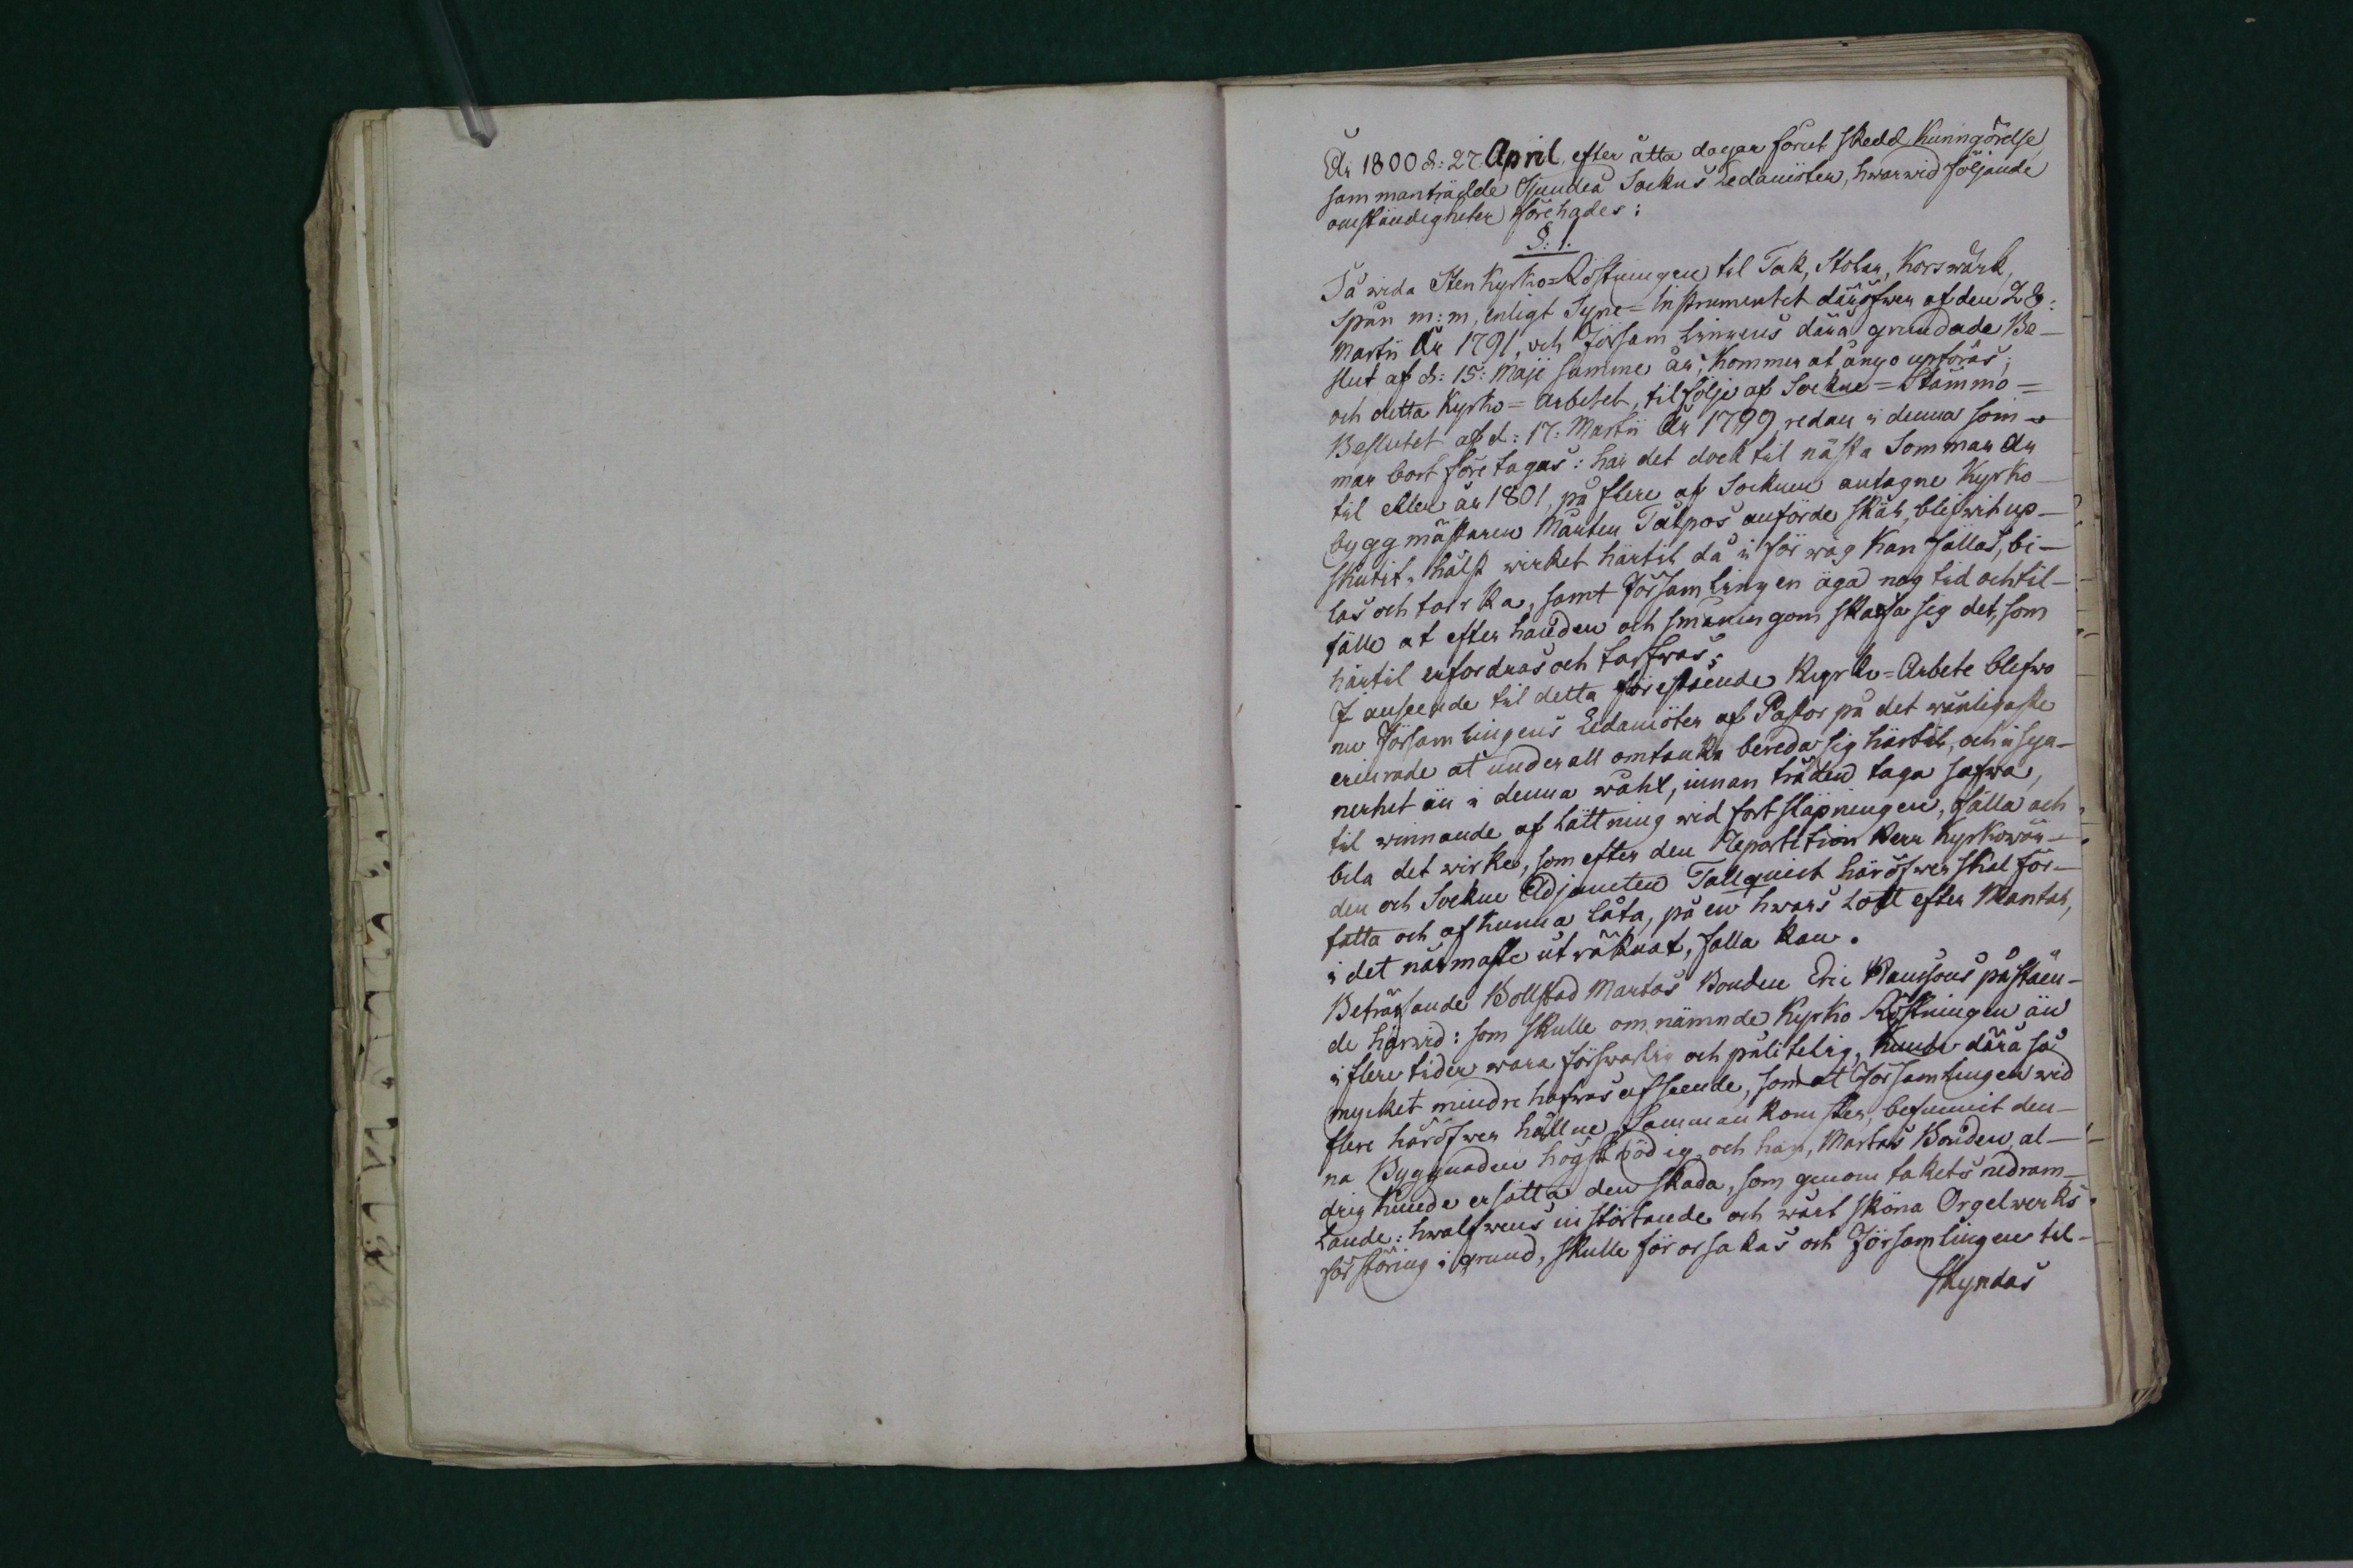 År 1800 d: 27. April, efter åtta dagar förut skedd kunngörelse,
sammanträdde Sjundeå Sockns Ledamöter, hwarwid följande
omständigheter förehades:
§: 1.
Så wida Sten Kyrko=Röstningen til Tak, Stolar, Korswärk,
Spån m: m, enligt Syne=Instrumentet däröfwer af den 28:
Martii År 1791, och Församlingens därå grundade Be-
slut af d: 15: Maji samme år, kommer at ånyo upföras;
och detta Kyrko=arbetet, til följe af Sockne=Stämmo=
Beslutet af d: 17: Martii År 1799, redan i denna som-
mar bort företagas: har det dock til nästa Sommar år
til eller år 1801, på flere af Socknen antagne Kyrko-
byggmästaren Mårten Tålpos anförde skäl, blifwit up-
skutit, hälst wirket härtil då i förwäg kan fällas, bi-
las och torrka, samt Församlingen äga nog tid och til-
fälle at efter handen och småningom skaffa sig det, som
härtil erfordras och tarfwas;
I anseende til detta förestående Kyrko=Arbete blefwo
nu Församlingens Ledamöter af Pastor på det wänligaste
erinrade at under all omtanka bereda sig härtil, och i syn-
nerhet än i denna wåhr, innan träden taga safwa,
til winnande af lättning wid fortsläpningen, fälla och
bila det wirke, som efter den Repartition Herr Kyrkowär-
den och Sockne Adjuncten Tallqvist häröfwer skal för-
fatta och afkunna låta, på en hwars Lott efter Mantal,
i det närmaste uträknat, falla kan.
Beträffande Bollstad Martas Bonden Eric Hanssons påståen-
de härwid: som skulle omnämnde Kyrko Röstningen än
i flere tider wara förswarlig och pålitelig, kunde därå så
mycket mindre hafwas afseende, som at Församlingen wid
flere häröfwer hållne Sammankomster, befunnit den-
na Byggnaden högstnödig, och han, Martas Bonden, al-
drig kunde ersätta den skada, som genom takets nedram-
lande: hwalfwens instörtande och wårt sköna Orgelwerks
förstöring i grund, skulle förorsakas och Församlingen til-
skyndas